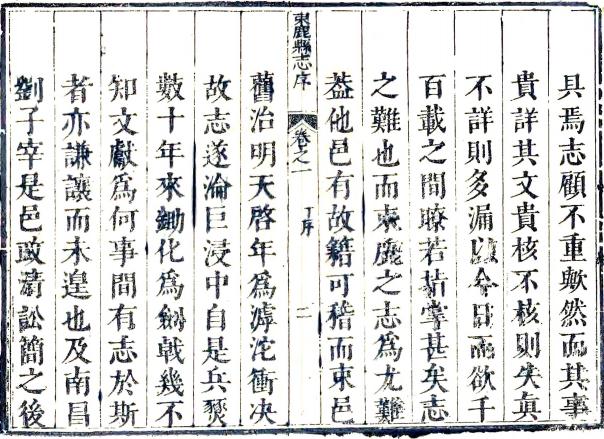 具焉志顧不重歟然而其事
貴詳其文貴核不核則失眞
不詳則多漏以今日而欲千
百載之間瞭若指掌甚矣志
之難也而束鹿之志爲尤難
葢他邑有故籍可稽而束邑
束鹿縣志序 卷之一 丁序 二
舊治明天啓年爲滹沱衝决
故志遂淪巨浸中自是兵燹
數十年來鋤化爲劍戟幾不
知文獻爲何事間有志於斯
者亦謙讓而未遑也及南昌
劉子宰是邑政淸訟簡之後